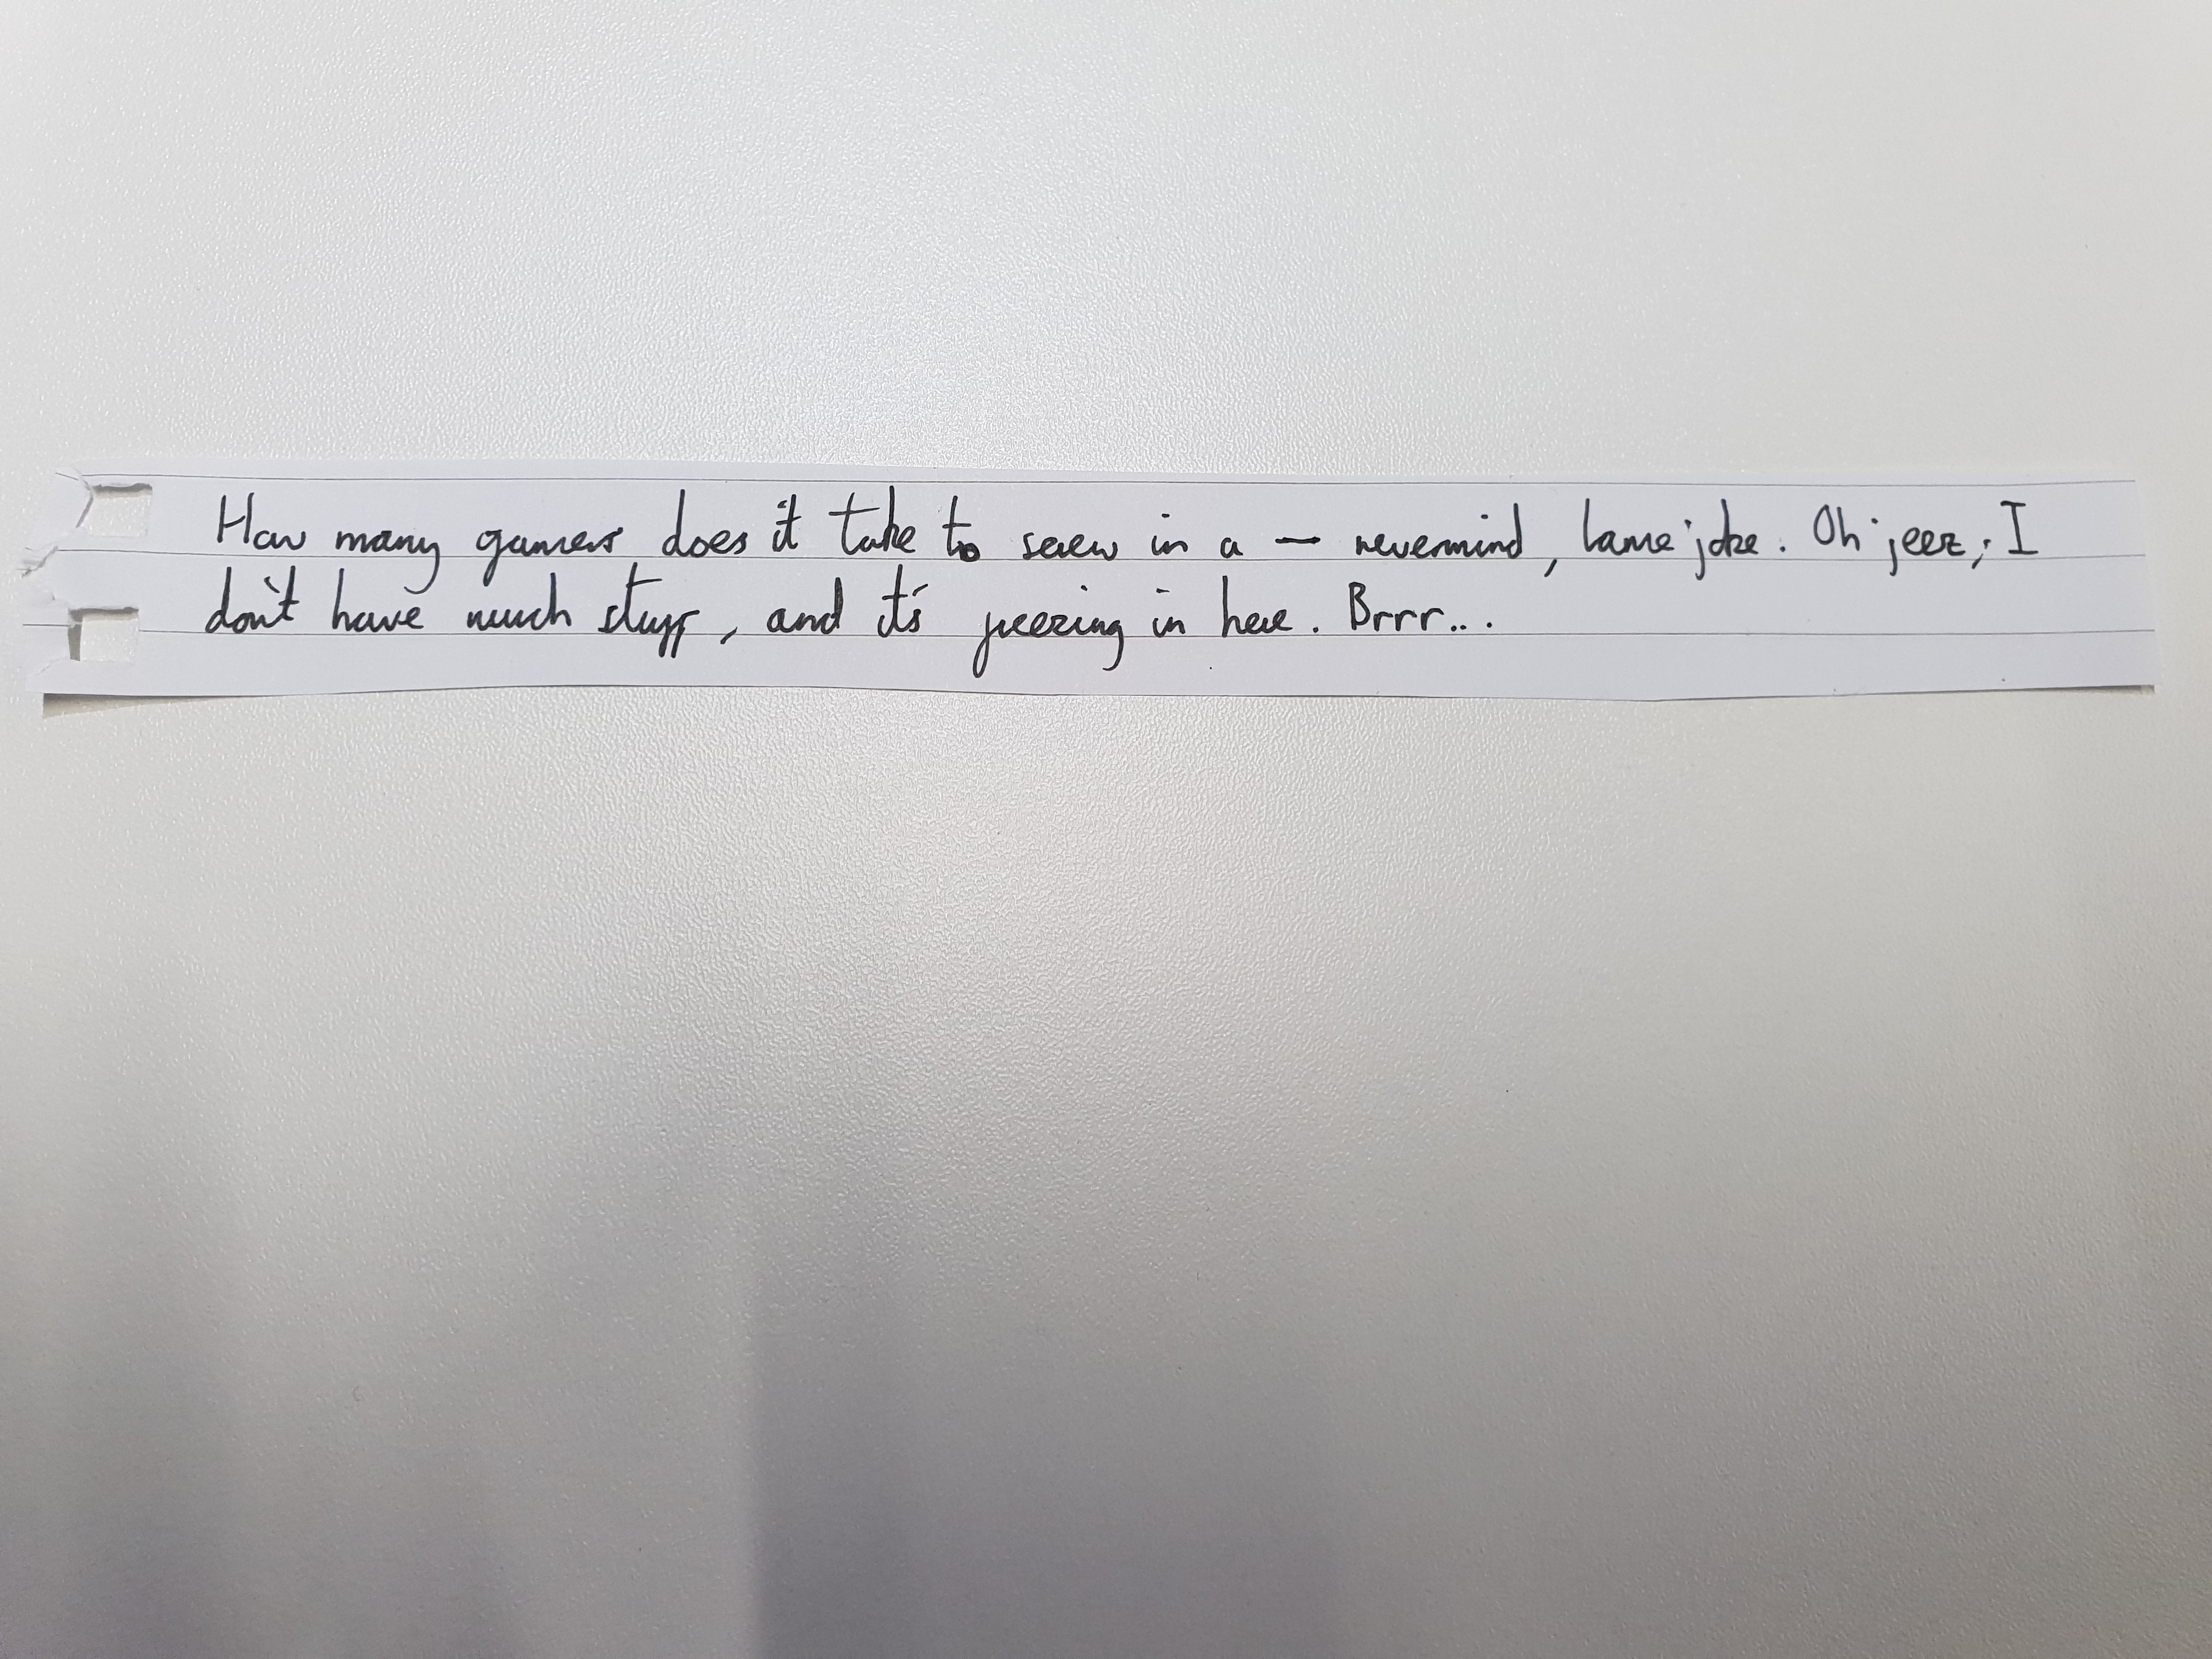 How many gamers does it take to screw in a — nevermind, lame joke. Oh jeez, I
don't have much stuff, and it's freezing in here. Brrr...